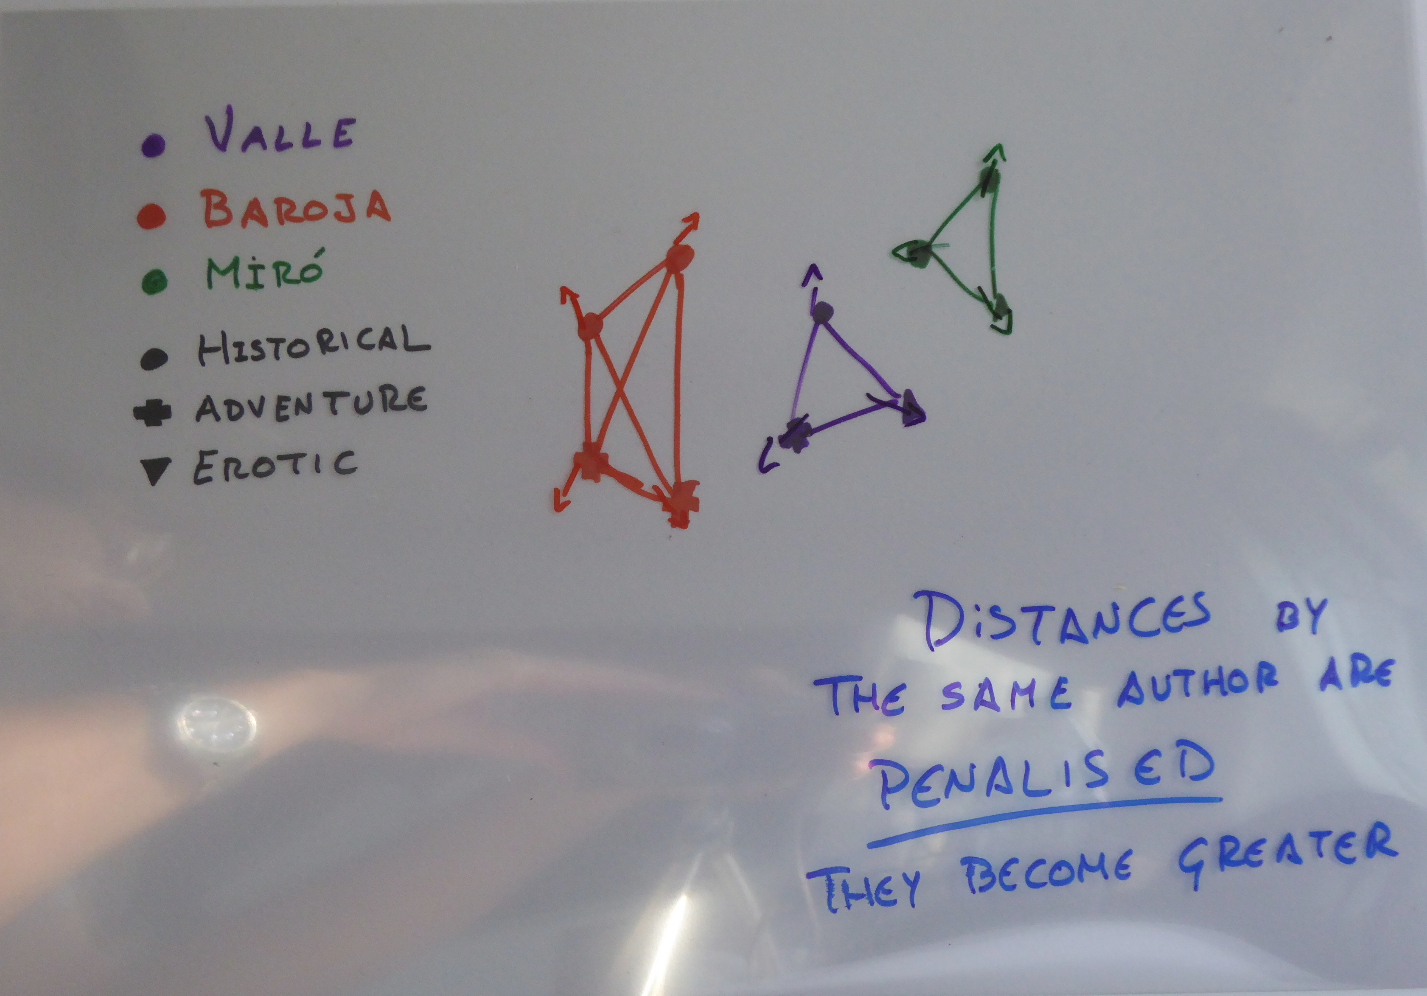 VALLE
BAROJA
MIRÓ
HISTORICAL
ADVENTURE
EROTIC
DISTANCES BY
THE SAME AUTHOR ARE
PENALISED
THEY BECOME GREATER